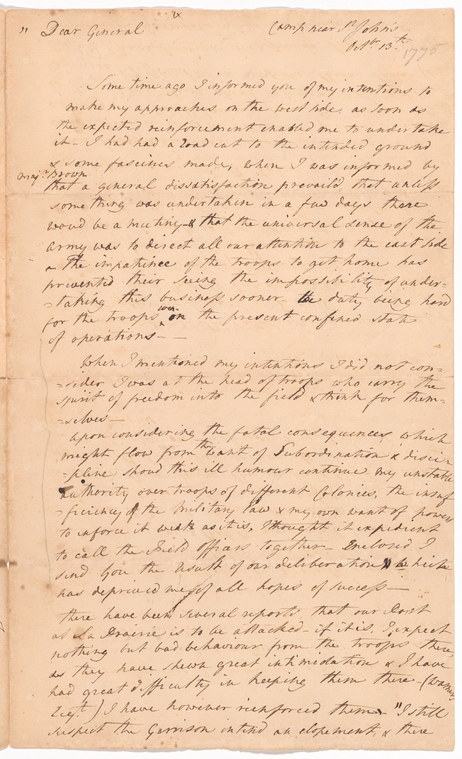 " Dear General Camp near St. John's
Octr. 13th. 1775
Some time ago I informed you of my intentions to
make my approaches on the west side, as soon as
the expected reinforcement enabled me to undertake
it. I had had a road cut to the intended ground
& some fascines made, when I was informed by
Majr. Brown
that a general dissatisfaction prevaild, that unless
something was undertaken in a few days there
woud be a mutiny & that the universal sense of the
army was to direct all our attention to the east side
- the impatience of the troops to get home has
prevented their seeing the impossibility of under-
-taking this business sooner the duty being hard
for the troops even on the present confined state
of operations —
When I mentioned my intentions I did not con-
-sider I was at the head of troops who carry the
spirit of freedom into the field & think for them-
-selves —
Upon considering the fatal consequences which
might flow from the want of Subordination & disci-
-pline shoud this ill humour continue my unstable
authority over troops of different Colonies, the insuf-
-ficiency of the Military law & my own want of powers
to inforce it weak as it is, I thought it expedient
to call the Field officers together. Inclosed I
send you the result of our deliberations which
has deprived me of all hopes of success —
there have been several reports that our Post
at La Prairie is to be attacked — if it is, I expect
nothing but bad behaviour from the troops there,
as they have shewn great intimidation & I have
had great difficulty in keeping them there (
Regt.) I have however reinforced them "I still
suspect the Garrison intend an elopement & there